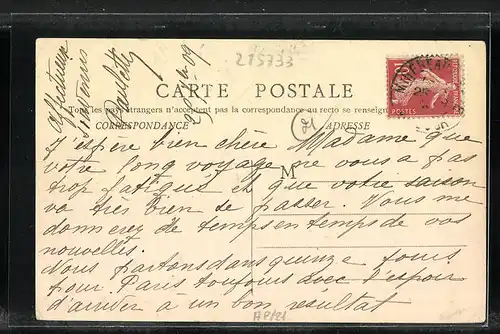 Affectueux
Paulette
215733
CARTE POSTALE
Tous les pays étrangers n'acceptent pas la correspondance au recto se renseign
CORRESPONDANCE
ADRESSE
M
POSTES
J'espère bien chère Madame que
votre long voyage ne vous a pas
trop fatigué et que votre saison
va très bien se passer. Vous me
donnerez de temps en temps de vos
nouvelles.
Nous partons dans quinze jours
pour Paris toujours avec l'espoir
d'arriver à un bon résultat
AP/21